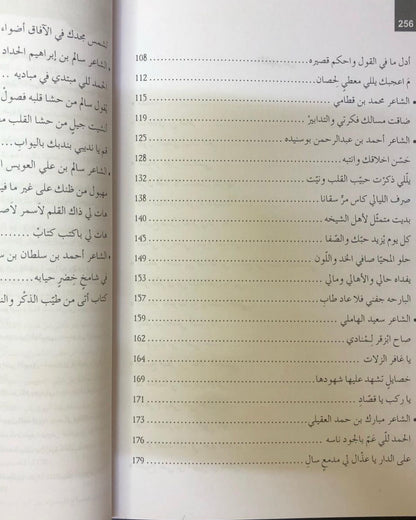 256
أدل ما في القول واحكم قصيره 108
م اعجبك يللي معطي لحصان 112
• الشاعر محمد بن قطامي 115
ضاقت مسالك فكرتي والتدابير 119
• الشاعر أحمد بن عبدالرحمن بوسنيده 125
حسّن اخلاقك وانتبه 128
يللّي ذكرْت حبيّب القلب ونّيت 132
صرف الليالي كاس مرٍّ سقانا 138
بديت متمثّل لأهل الشيخه 140
كل يوم يْزيد حبّك والصّفا 145
حلو المحيّا صافي الخد واللّون 149
يفداه حالي والأهالي ومالي 153
البارحه جفني فلا عاد طاب 157
• الشاعر سعيد الهاملي 159
صاح ابْرقرٍ لمْنادي 162
يا غافر الزلات 164
خصايلٍ تشهد عليها شهودها 169
يا ركب يا قصّادِ 171
• الشاعر مبارك بن حمد العقيلي 173
الحمد للّي عَمّ بالجود ناسه 176
على الدار يا عذّال لي مدمعٍ سالِ 179
تشمس مجدك في الآفاق أضواء
• الشاعر سالم بن إبراهيم الحداد
الحمد للي مبتدي في مباديه
يقول سالم من حشا قلبه فصولْ
أنشيت جيلٍ من حشا القلب
قم يا نديبي بندبك بالبواب
• الشاعر سالم بن علي العويس
مهبول من ظنك على غير ما
هات لي ذاك القلم لأسمر
هات لي باكتب كتابْ
• الشاعر أحمد بن سلطان بن
في شامخٍ خضرٍ حيابه
كتاب أتى من طيّب الذكْر